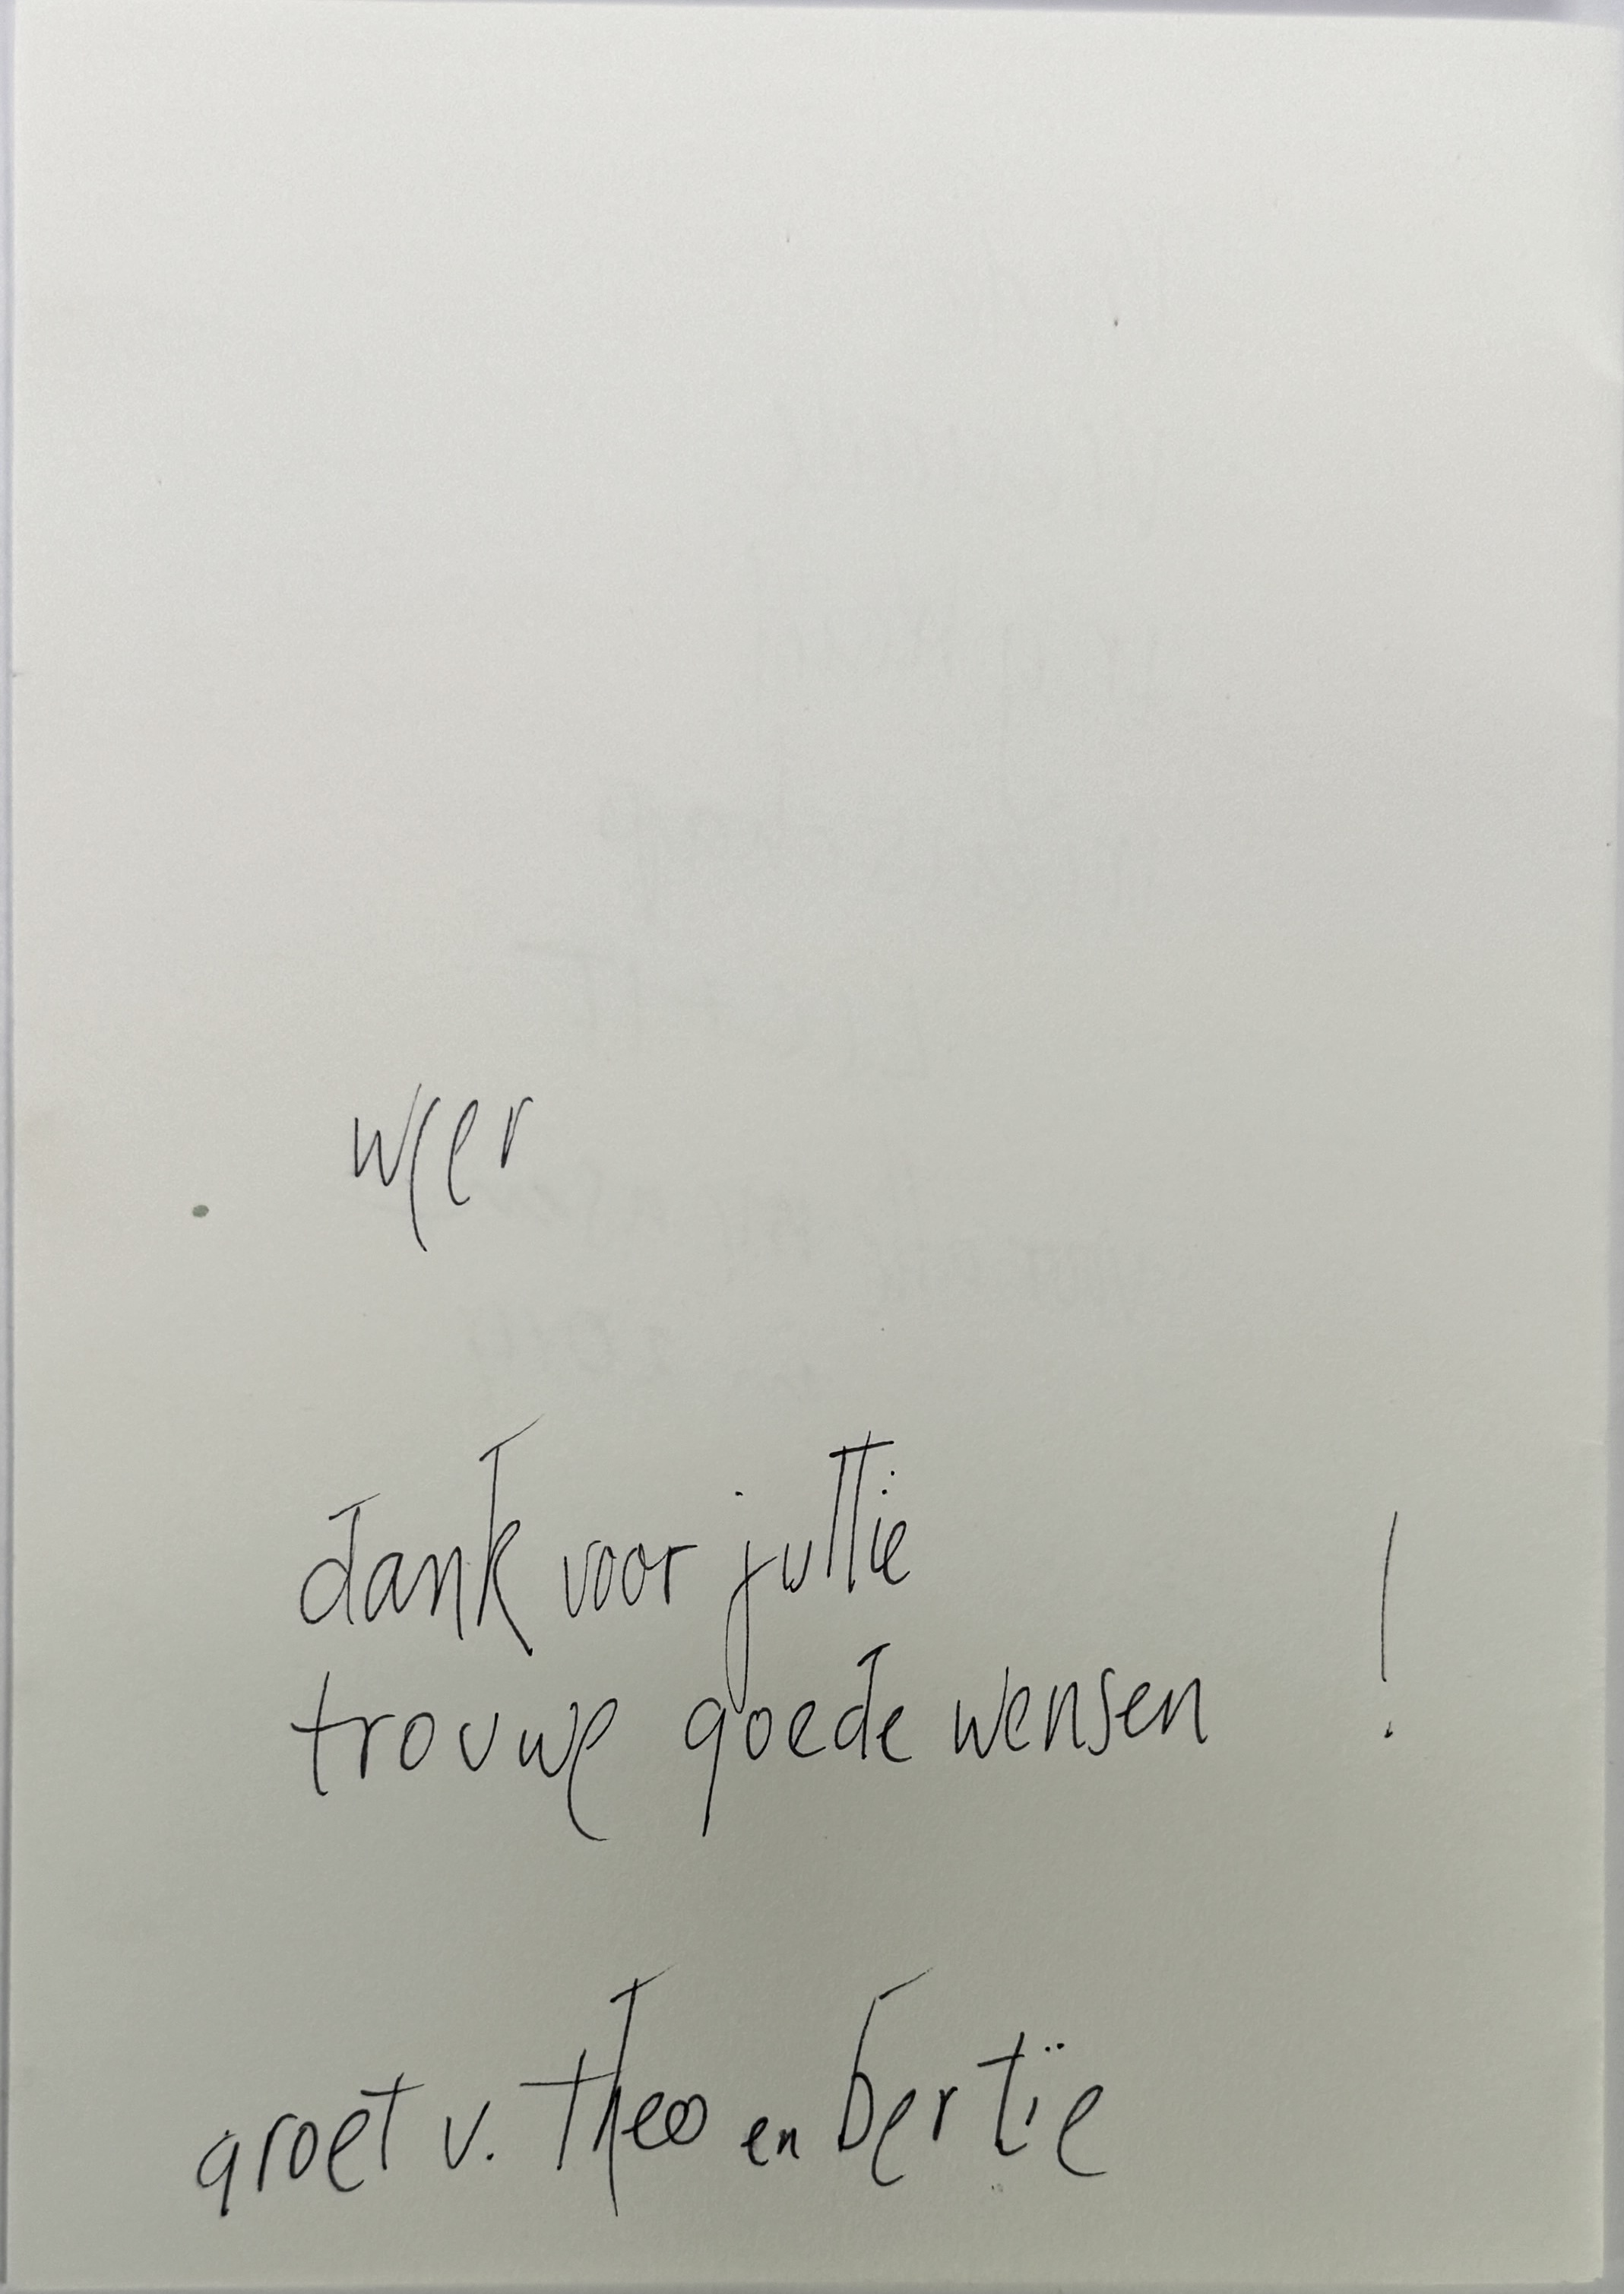 weer
dank voor jullie
trouwe goede wensen !
groet v. theo en bertie